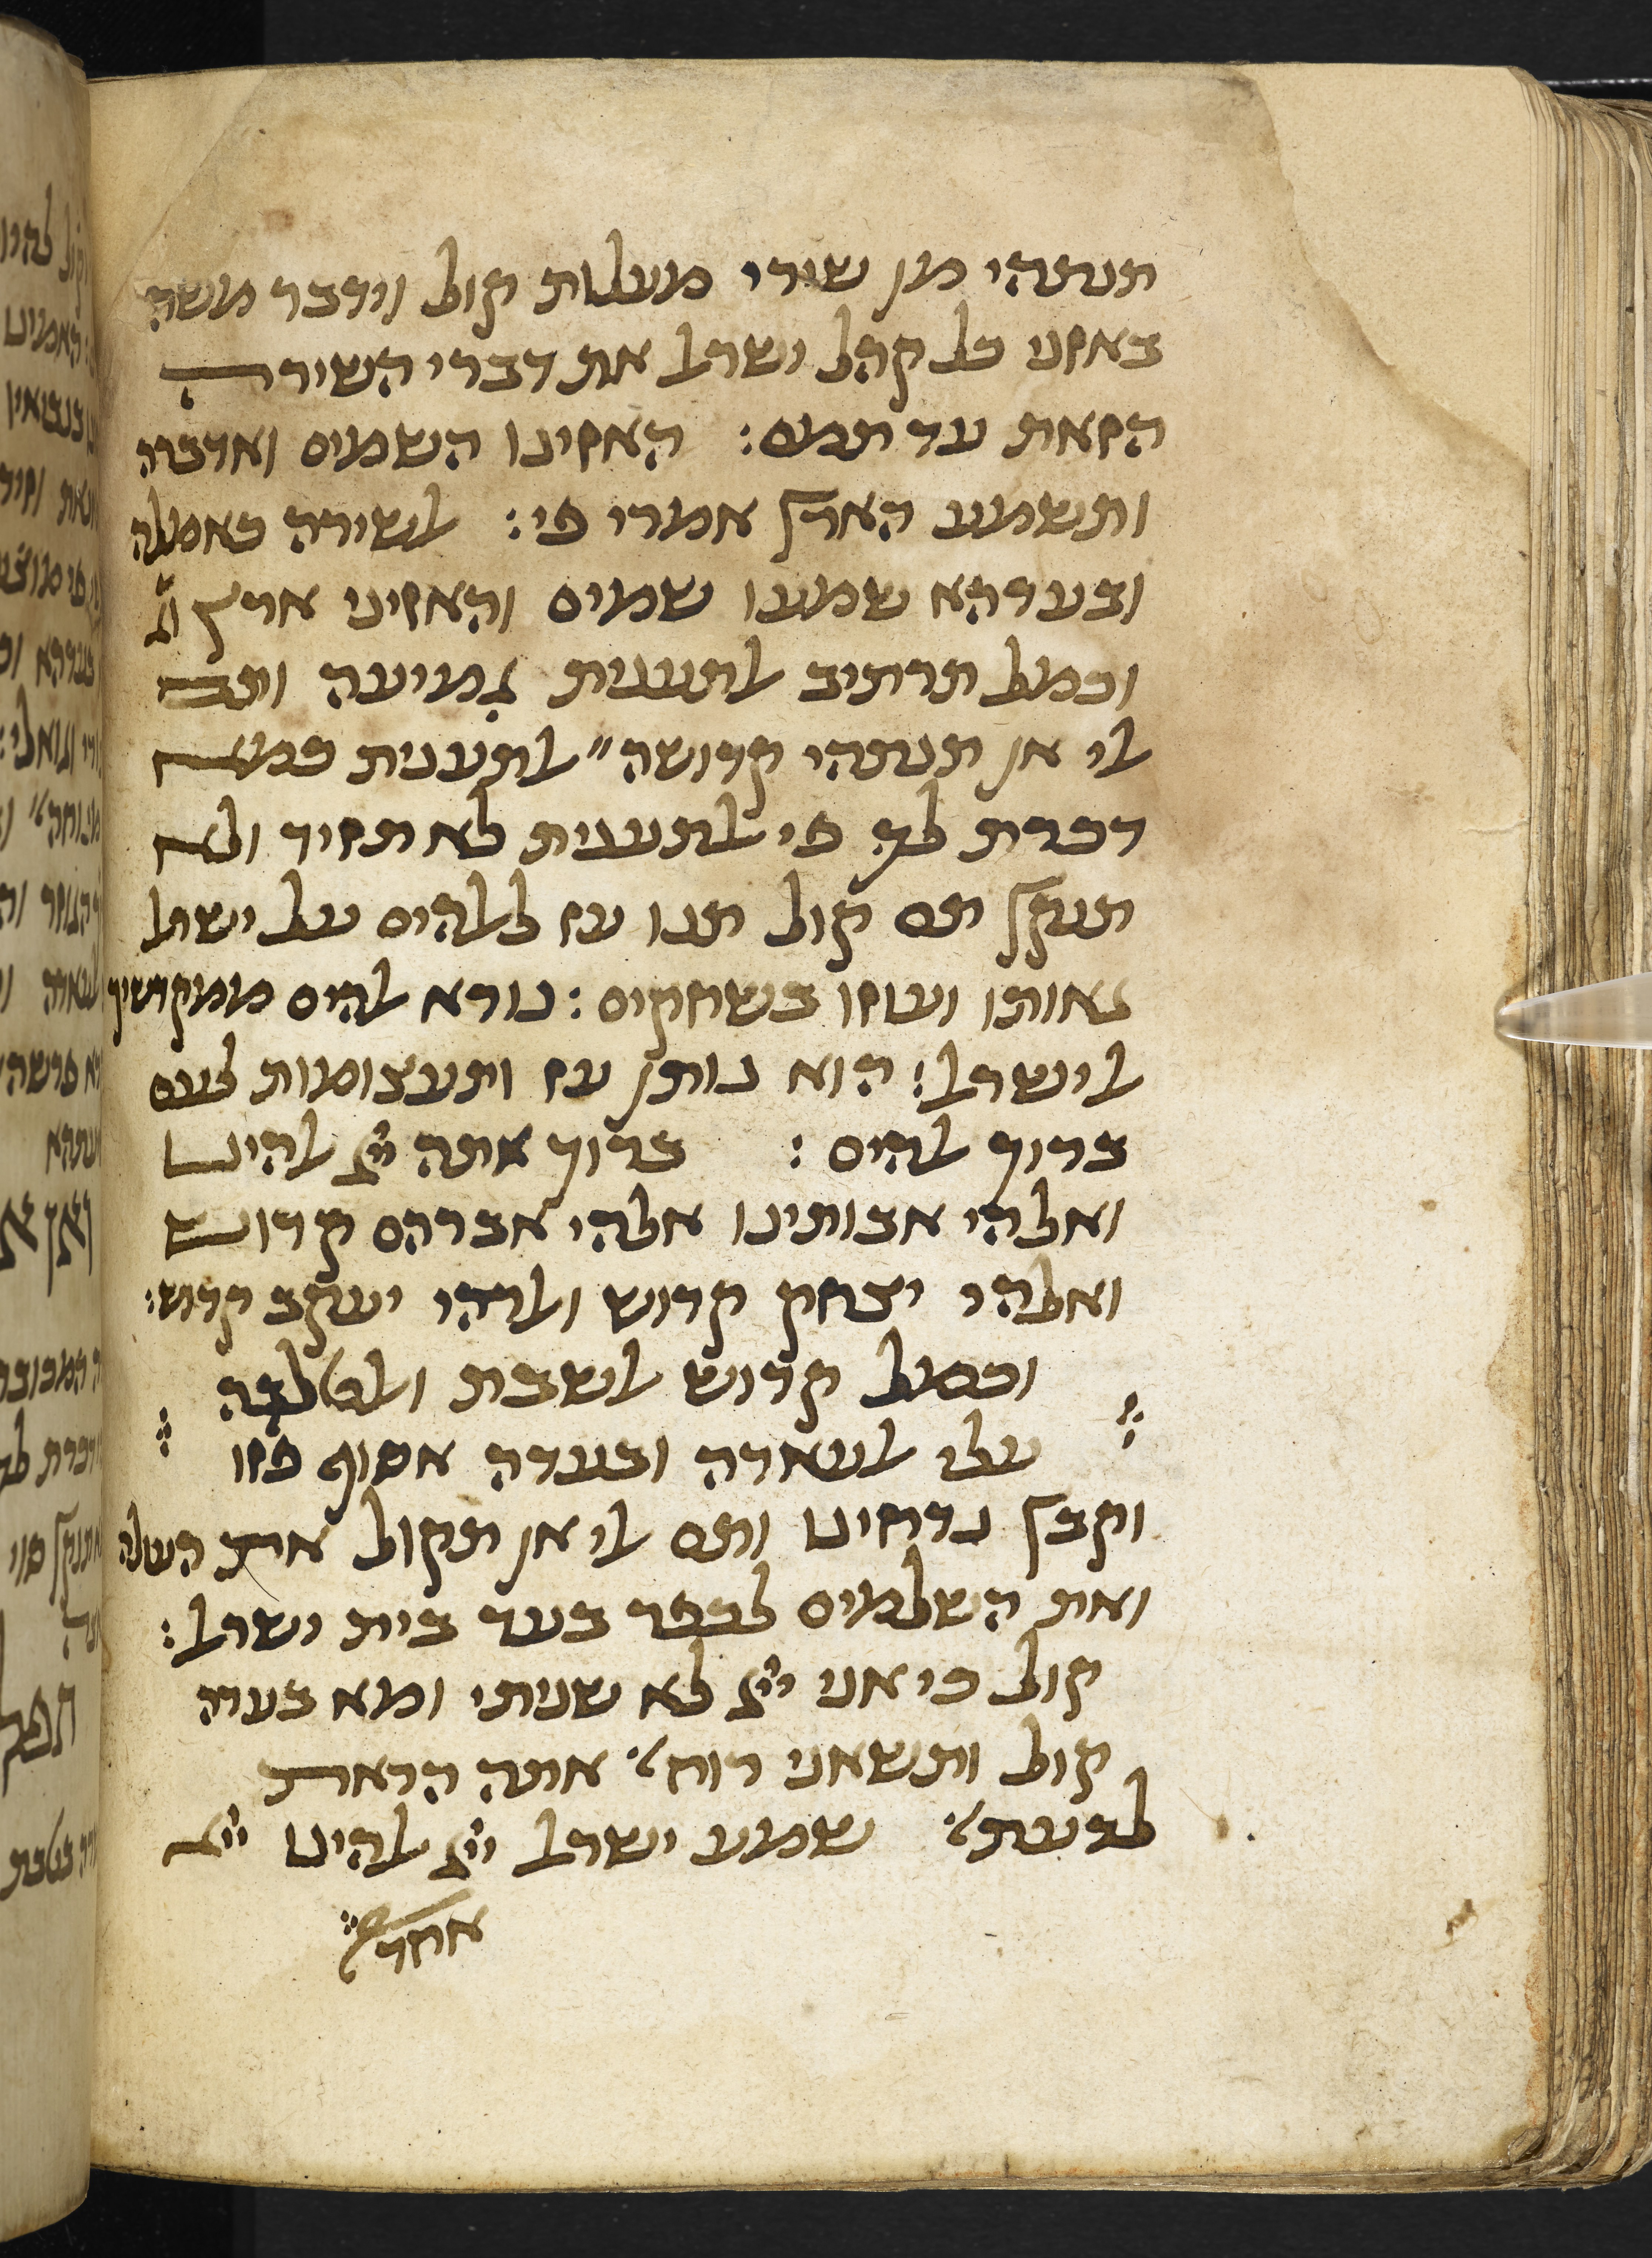 תנתהי מן שירי מעלות קול וידבר משה
באזני כל קהל ישראל את דברי השירה
הזאת עד תמם: האזינו השמים ואדברה
ותשמע הארץ אמרי פי: אלשירה כאמלה
ובעדהא שמעו שמים והאזיני ארץ
וכמל תרתיב אלתענית גמיעה ותם
אלי אן תנתהי קדושה״ אלתענית כמא
דכרת לך פי אלתענית לא תזיד ולא
תנקץ תם קול תנו עז לאלהים על ישראל
גאותו ועוזו בשחקים: נורא אלהים ממקדשיך
אל ישראל: הוא נותן עז ותעצומות לעם
ברוך אלהים: ברוך אתה ייי אלהינו
ואלהי אבותינו אלהי אברהם קדוש
ואלהי יצחק קדוש ואלהי יעקב קדוש:
וכמל קדוש אלשבת
עלי אלעאדה ובעדה אסוף פזו
וקבץ נדחינו ותם אלי אן תקול את העולה
ואת השלמים לכפר בעד בית ישראל:
קול כי אני ייי לא שניתי ומא בעדה
קול ותשאני רוח׳ אתה הראת
לדעת׳ שמע ישראל ייי אלהינו ייי
אחד